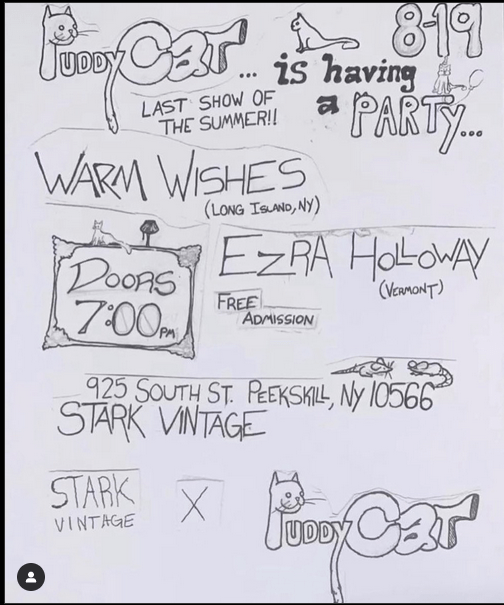 PUDDY CAT...
is having
a PARTY...
8-19
LAST SHOW OF
THE SUMMER!!
WARM WISHES
(LONG ISLAND, NY)
DOORS
7:00 PM
EZRA HOLLOWAY
(VERMONT)
FREE
ADMISSION
925 SOUTH ST. PEEKSKILL, NY 10566
STARK VINTAGE
STARK
VINTAGE
X
PUDDY CAT